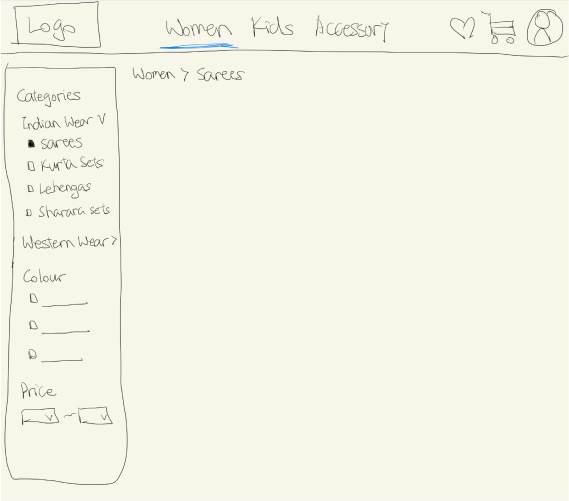 Logo
Women Kids Accessory
Women > Sarees
Categories
Indian Wear V
Sarees
Kurta Sets
Lehengas
Sharara Sets
Western Wear >
Colour
Price
V ~ V